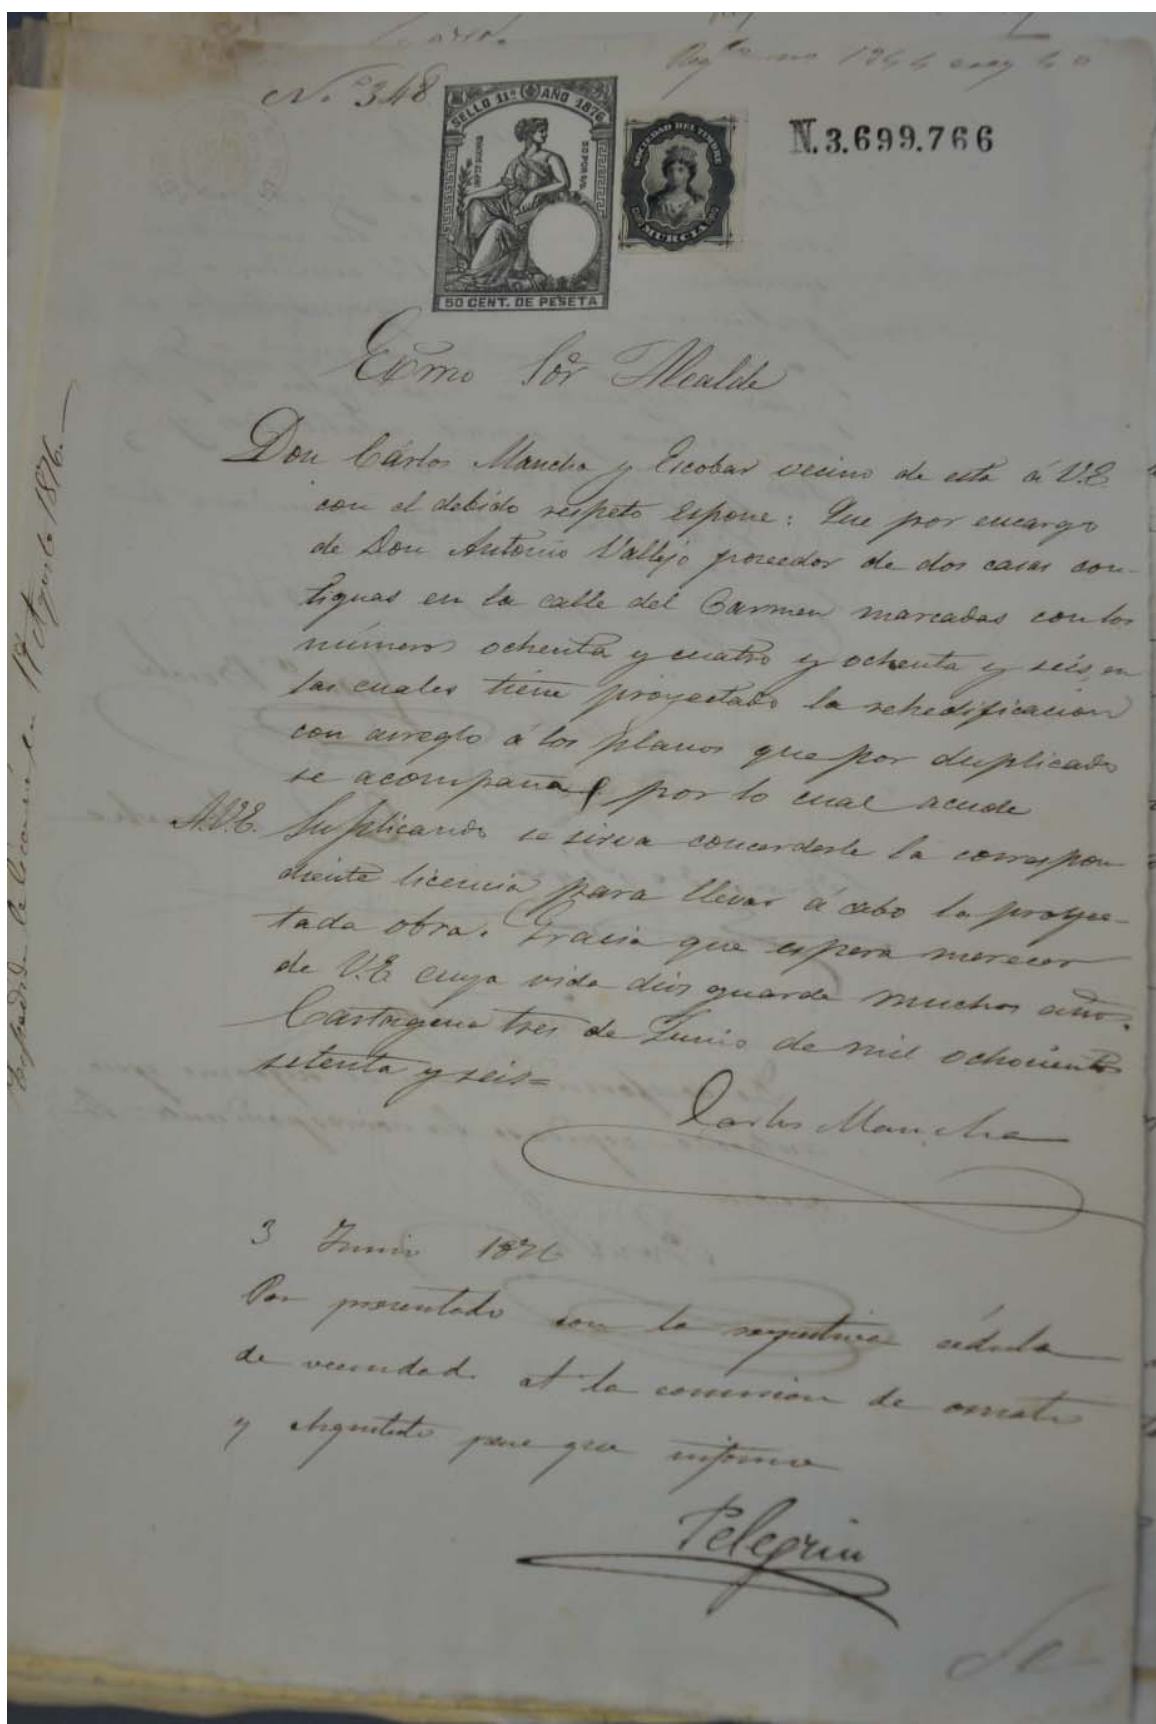 N.º 348
SELLO 11º AÑO 1876
50 CENT. DE PESETA
SOCIEDAD DEL TIMBRE
MURCIA
N.3.699.766
Exmo Sor Alcalde
Don Cárlos Mancha y Escobar vecino de esta á V.E
con el debido respeto Espone: Que por encargo
de Don Antonio Vallejo poseedor de dos casas con-
tiguas en la calle del Carmen marcadas con los
números ochenta y cuatro y ochenta y seis, en
las cuales tiene proyectado la rehedificacion
con arreglo á los planos que por duplicado
se acompaña por lo cual acude
A.V.E. Suplicando se sirva concederle la correspon
diente licencia para llevar á cabo la proyec-
tada obra. Gracia que espera merecer
de V.E cuya vida dios guarde muchos años.
Cartagena tres de Junio de mil ochocientos
setenta y seis=
Carlos Mancha
3 Junio 1876
Por presentado con la respectiva cédula
de vecindad. A la comision de ornato
y Arquitecto para que informe
Pelegrin
Espedida la licencia en 17 Agosto 1876.—